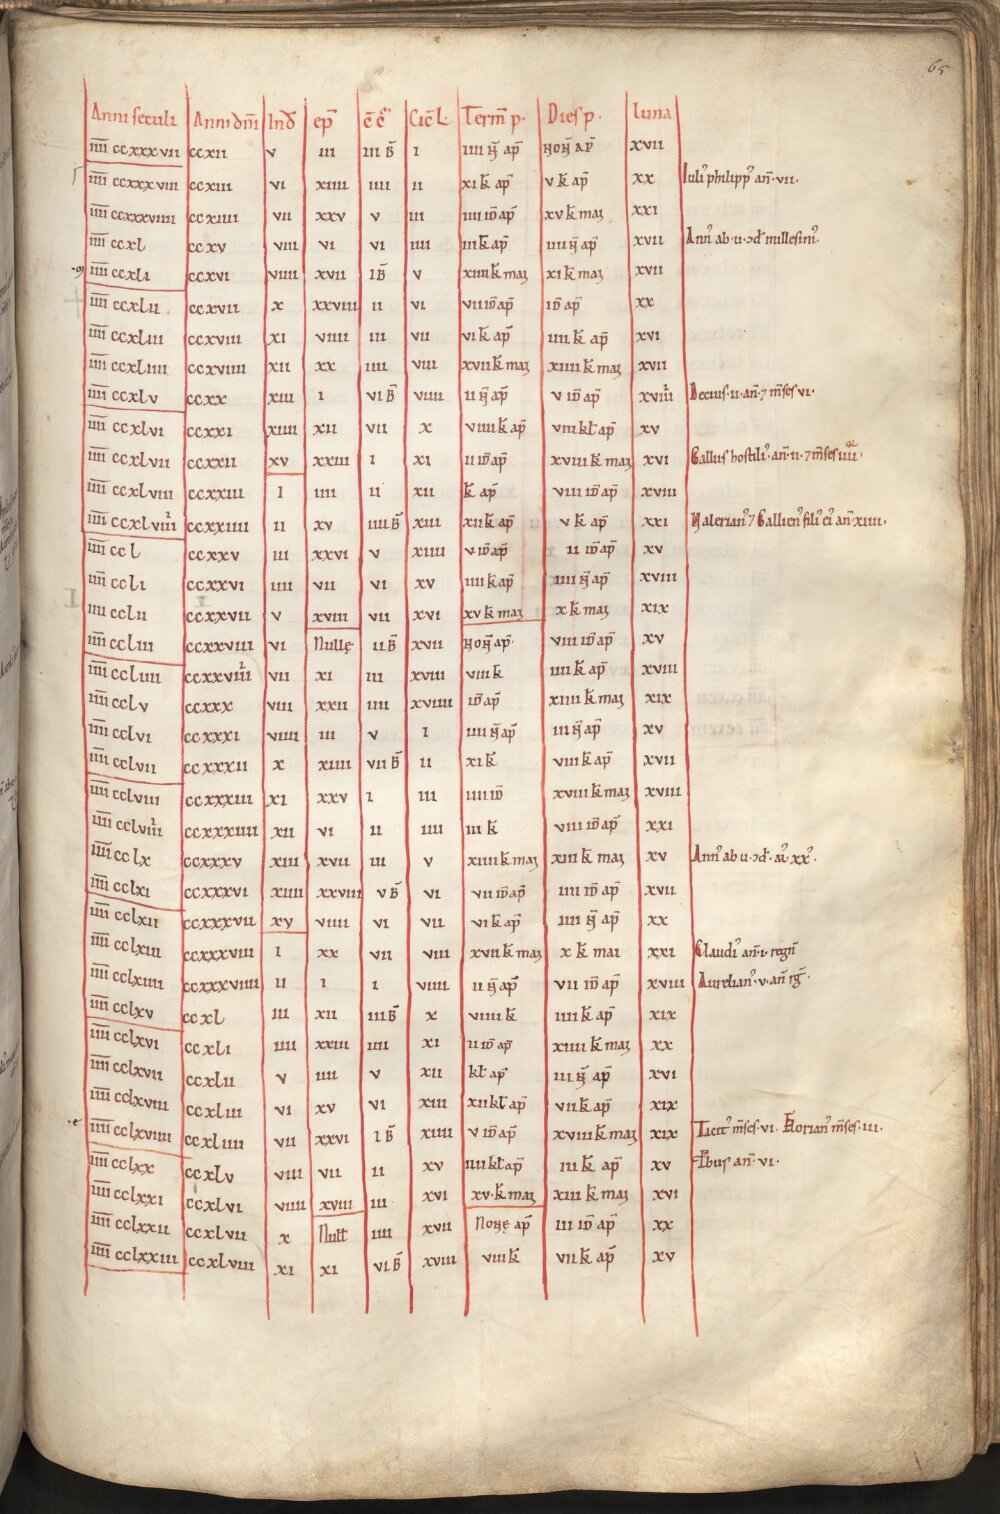 65
Anni seculi Anni dn̄i Ind̄ ep̄ c̄c̄ Cicl̄ Term̄ p. Dies p. luna
īīīī ccxxxvii ccxii v iii iii B̄ i iiii n̄ ap̄ non̄ ap̄ xvii
īīīī ccxxxviii ccxiii vi xiiii iiii ii xi k̄ ap̄ v k̄ ap̄ xx Iuliꝰ philippꝰ an̄ vii.
īīīī ccxxxviiii ccxiiii vii xxv v iii iiii id̄ ap̄ xv k̄ mai xxi
īīīī ccxl ccxv viii vi vi iiii iii k̄ ap̄ iiii n̄ ap̄ xvii Annꝰ ab u. ꝯd̄ millesimꝰ.
īīīī ccxli ccxvi viiii xvii i B̄ v xiiii k̄ mai xi k̄ mai xvii
īīīī ccxlii ccxvii x xxviii ii vi vii id̄ ap̄ id̄ ap̄ xx
īīīī ccxliii ccxviii xi viiii iii vii vi k̄ ap̄ iiii k̄ ap̄ xvi
īīīī ccxliiii ccxviiii xii xx iiii viii xvii k̄ mai xiiii k̄ mai xvii
īīīī ccxlv ccxx xiii i vi B̄ viiii ii n̄ ap̄ v id̄ ap̄ xviiii Decius. ii. an̄. ⁊ m̄ses vi.
īīīī ccxlvi ccxxi xiiii xii vii x viiii k̄ ap̄ viii kl̄ ap̄ xv
īīīī ccxlvii ccxxii xv xxiii i xi ii id̄ ap̄ xviii k̄ mai xvi Gallus hostiliꝰ. an̄. ii. ⁊ m̄ses iiii.
īīīī ccxlviii ccxxiii i iiii ii xii k̄ ap̄ viii id̄ ap̄ xviii
īīīī ccxlviiii ccxxiiii ii xv iiii B̄ xiii xii k̄ ap̄ v k̄ ap̄ xxi Valerianꝰ ⁊ Gallienꝰ filiꝰ eiꝰ an̄ xiiii.
īīīī ccl ccxxv iii xxvi v xiiii v id̄ ap̄ ii id̄ ap̄ xv
īīīī ccli ccxxvi iiii vii vi xv iiii k̄ ap̄ iiii n̄ ap̄ xviii
iiii cclii ccxxvii v xviii vii xvi xv k̄ mai x k̄ mai xix
īīīī ccliii ccxxviii vi Nullę ii B̄ xvii non̄ ap̄. viii id̄ ap̄ xv
īīīī ccliiii ccxxviiii vii xi iii xviii viii k̄ iiii k̄ ap̄ xviii
īīīī cclv ccxxx viii xxii iiii xviiii id̄ ap̄ xiiii k̄ mai xix
īīīī cclvi ccxxxi viiii iii v i iiii n̄ ap̄ iii n̄ ap̄ xv
īīīī cclvii ccxxxii x xiiii vii B̄ ii xi k̄ viii k̄ ap̄ xvii
īīīī cclviii ccxxxiii xi xxv i iii iiii id̄ xviii k̄ mai xviii
īīīī cclviiii ccxxxiiii xii vi ii iiii iii k̄ viii id̄ ap̄ xxi
īīīī cclx ccxxxv xiii xvii iii v xiiii k̄ mai xiii k̄ mai xv Annꝰ ab u. ꝯd̄.
īīīī cclxi ccxxxvi xiiii xxviii v B̄ vi vii id̄ ap̄ iiii id̄ ap̄ xvii
īīīī cclxii ccxxxvii xv viiii vi vii vi k̄ ap̄ iiii n̄ ap̄ xx
īīīī cclxiii ccxxxviii i xx vii viii xvii k̄ mai x k̄ mai xxi Claudiꝰ an̄. i. regn̄
īīīī cclxiiii ccxxxviiii ii i i viiii ii n̄ ap̄ vii id̄ ap̄ xviii Aurelianꝰ. v. an̄ rḡ.
īīīī cclxv ccxl iii xii iii B̄ x viiii k̄ iiii k̄ ap̄ xix
īīīī cclxvi ccxli iiii xxiii iiii xi ii id̄ ap̄ xiiii k̄ mai xx
īīīī cclxvii ccxlii v iiii v xii kl̄ ap̄ iii n̄ ap̄ xvi
īīīī cclxviii ccxliii vi xv vi xiii xii kl̄ ap̄ vii k̄ ap̄ xix
īīīī cclxviiii ccxliiii vii xxvi i B̄ xiiii v id̄ ap̄ xviii k̄ mai xix Tacitꝰ m̄ses. vi. Florianꝰ m̄ses. iii.
īīīī cclxx ccxlv viii vii ii xv iiii kl̄ ap̄ iii k̄ ap̄ xv P̄bus an̄. vi.
īīīī cclxxi ccxlvi viiii xviii iii xvi xv. k̄ mai xiii k̄ mai xvi
īīīī cclxxii ccxlvii x Null̄ iiii xvii Nonę ap̄ iii id̄ ap̄ xx
īīīī cclxxiii ccxlviii xi xi vi B̄ xviii viii k̄ vii k̄ ap̄ xv